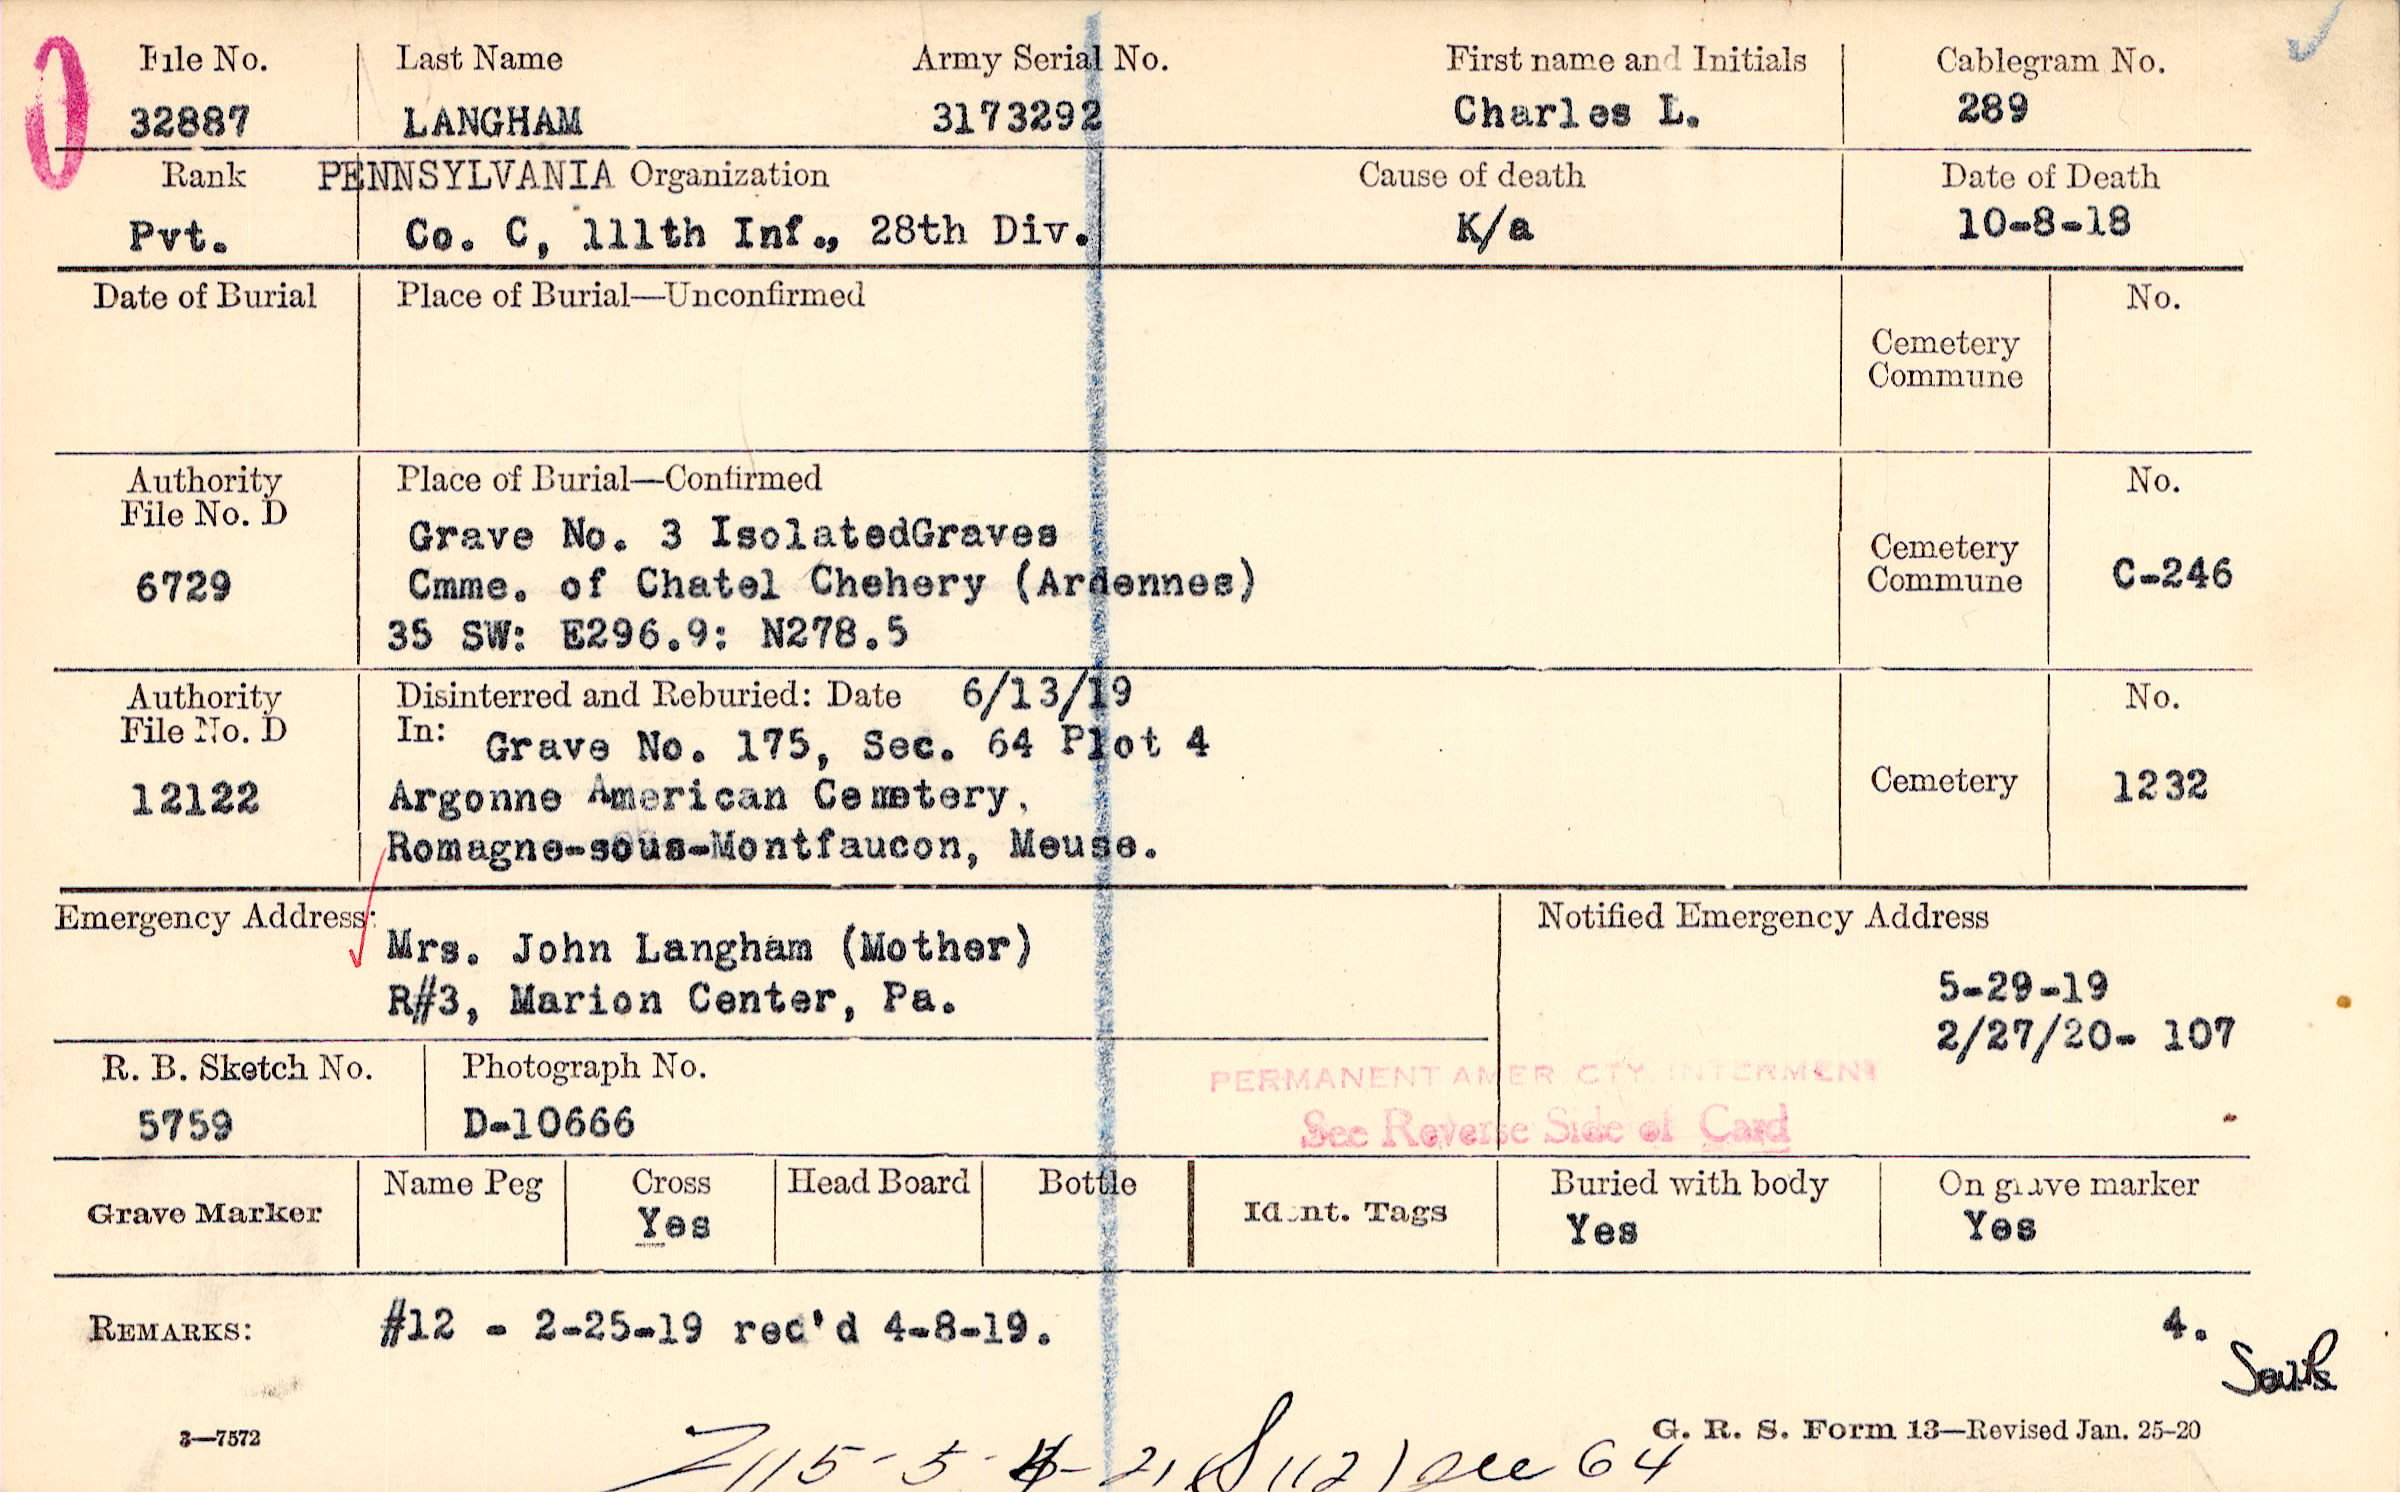 File No. Last Name Army Serial No. First name and Initials Cablegram No.
32887 LANGHAM 3173292 Charles L. 289
Rank PENNSYLVANIA Organization Cause of death Date of Death
Pvt. Co. C, 111th Inf., 28th Div. K/a 10-8-18
Date of Burial Place of Burial—Unconfirmed No.
Cemetery
Commune
Authority Place of Burial—Confirmed No.
File No. D
Grave No. 3 IsolatedGraves
Cemetery
6729 Cmme. of Chatel Chehery (Ardennes) Commune C-246
35 SW: E296.9: N278.5
Authority Disinterred and Reburied: Date 6/13/19 No.
File No. D In: Grave No. 175, Sec. 64 Plot 4
12122 Argonne American Cemetery, Cemetery 1232
Romagne-sous-Montfaucon, Meuse.
Emergency Address: Notified Emergency Address
Mrs. John Langham (Mother)
R#3, Marion Center, Pa. 5-29-19
2/27/20- 107
R. B. Sketch No. Photograph No. PERMANENT AMER CTY. INTERMENT
5759 D-10666 See Reverse Side of Card
Grave Marker Name Peg Cross Head Board Bottle Ident. Tags Buried with body On grave marker
Yes Yes Yes
REMARKS: #12 - 2-25-19 rec'd 4-8-19. 4.
3—7572 G. R. S. Form 13—Revised Jan. 25-20
see 64